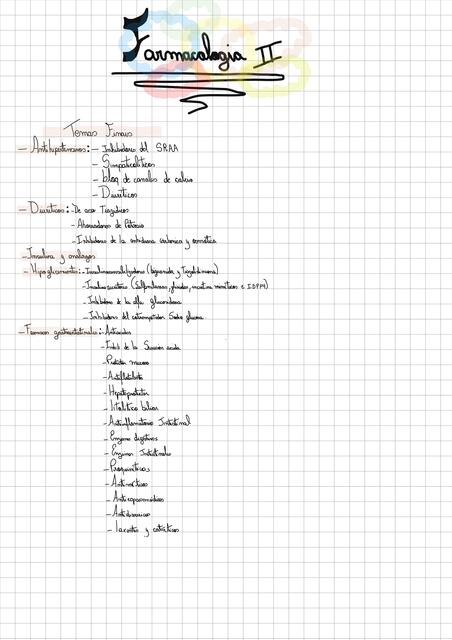 Farmacologia II
Temas Finais
- Antihipertensivos: - Inhibidores del SRAA
- Simpaticoliticos
- bloq de canales de calcio
- Diureticos
- Diureticos: - De asa Tiazidicos
- Ahorradores de Potasio
- Inhibidores de la anhidrasa carbonica y osmotica
- Insulina y analogos
- Hipoglicemiantes: - Insulinosensibilizadores (biguanida y Tiazolidinediona)
- Insulinosecretores (Sulfonilureas, glinidas, incretina mimeticos e IDPP4)
- Inhibidores de la alfa glucosidasa
- Inhibidores del cotransportador Sodio glucosa
- Farmacos gastrointestinales: - Antiacidos
- Inhib de la Secreción acida
- Protector mucosa
- Antiflatulento
- Hepatoprotector
- Litolitico biliar
- Antiinflamatorio Intestinal
- Enzimas digestivas
- Enzimas Intestinales
- Proquineticos
- Antiemeticos
- Antiespasmodicos
- Antidiarreicos
- laxantes y catarticos